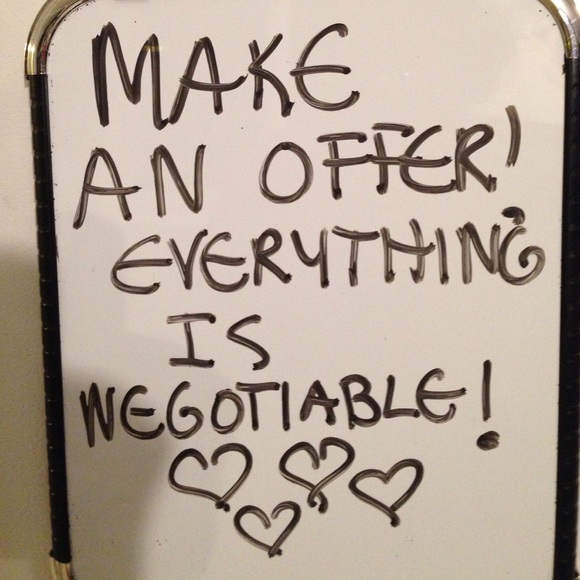 MAKE
AN OFFER!
EVERYTHING
IS
NEGOTIABLE!